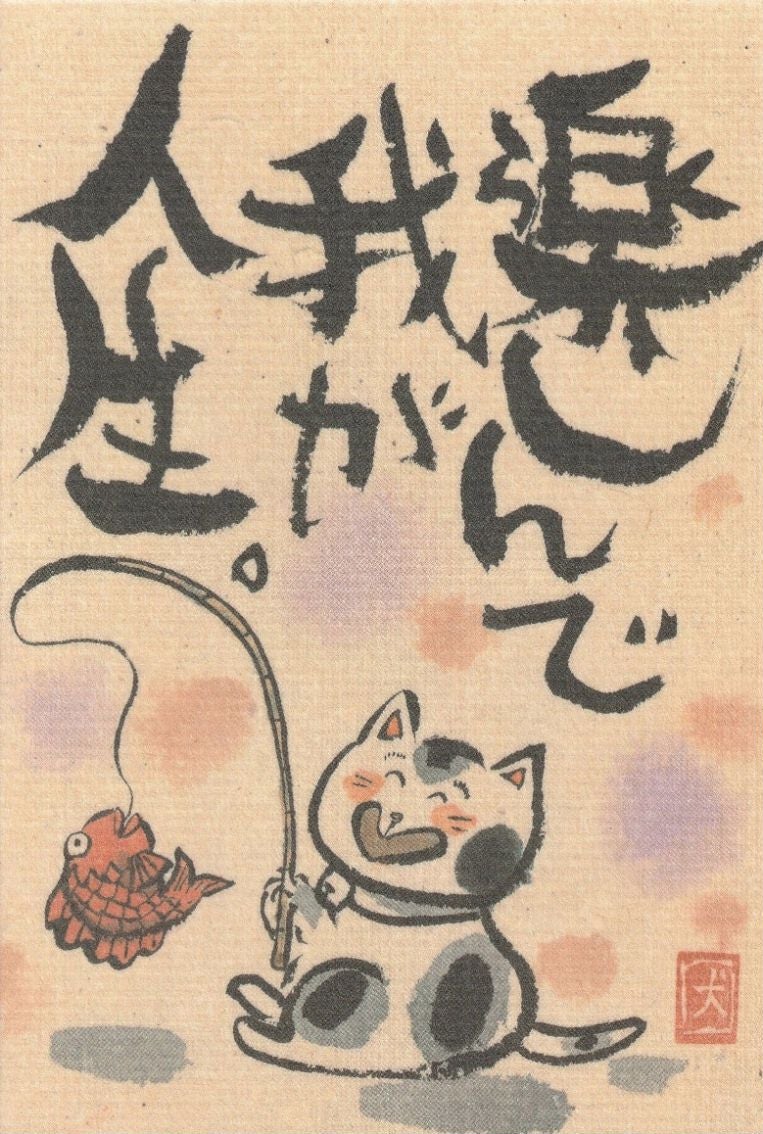 楽しんで
我が
人生。